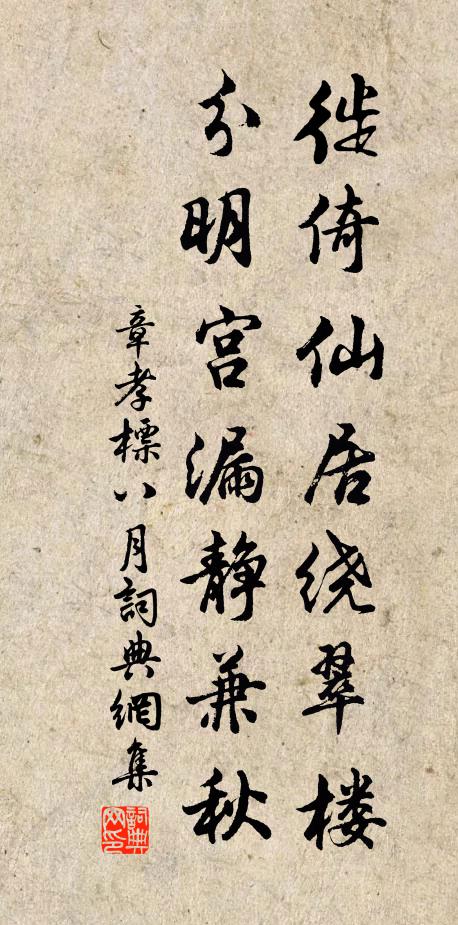 徙倚仙居绕翠楼
分明宫漏静兼秋
章孝標八月詞典網集
詞典网印